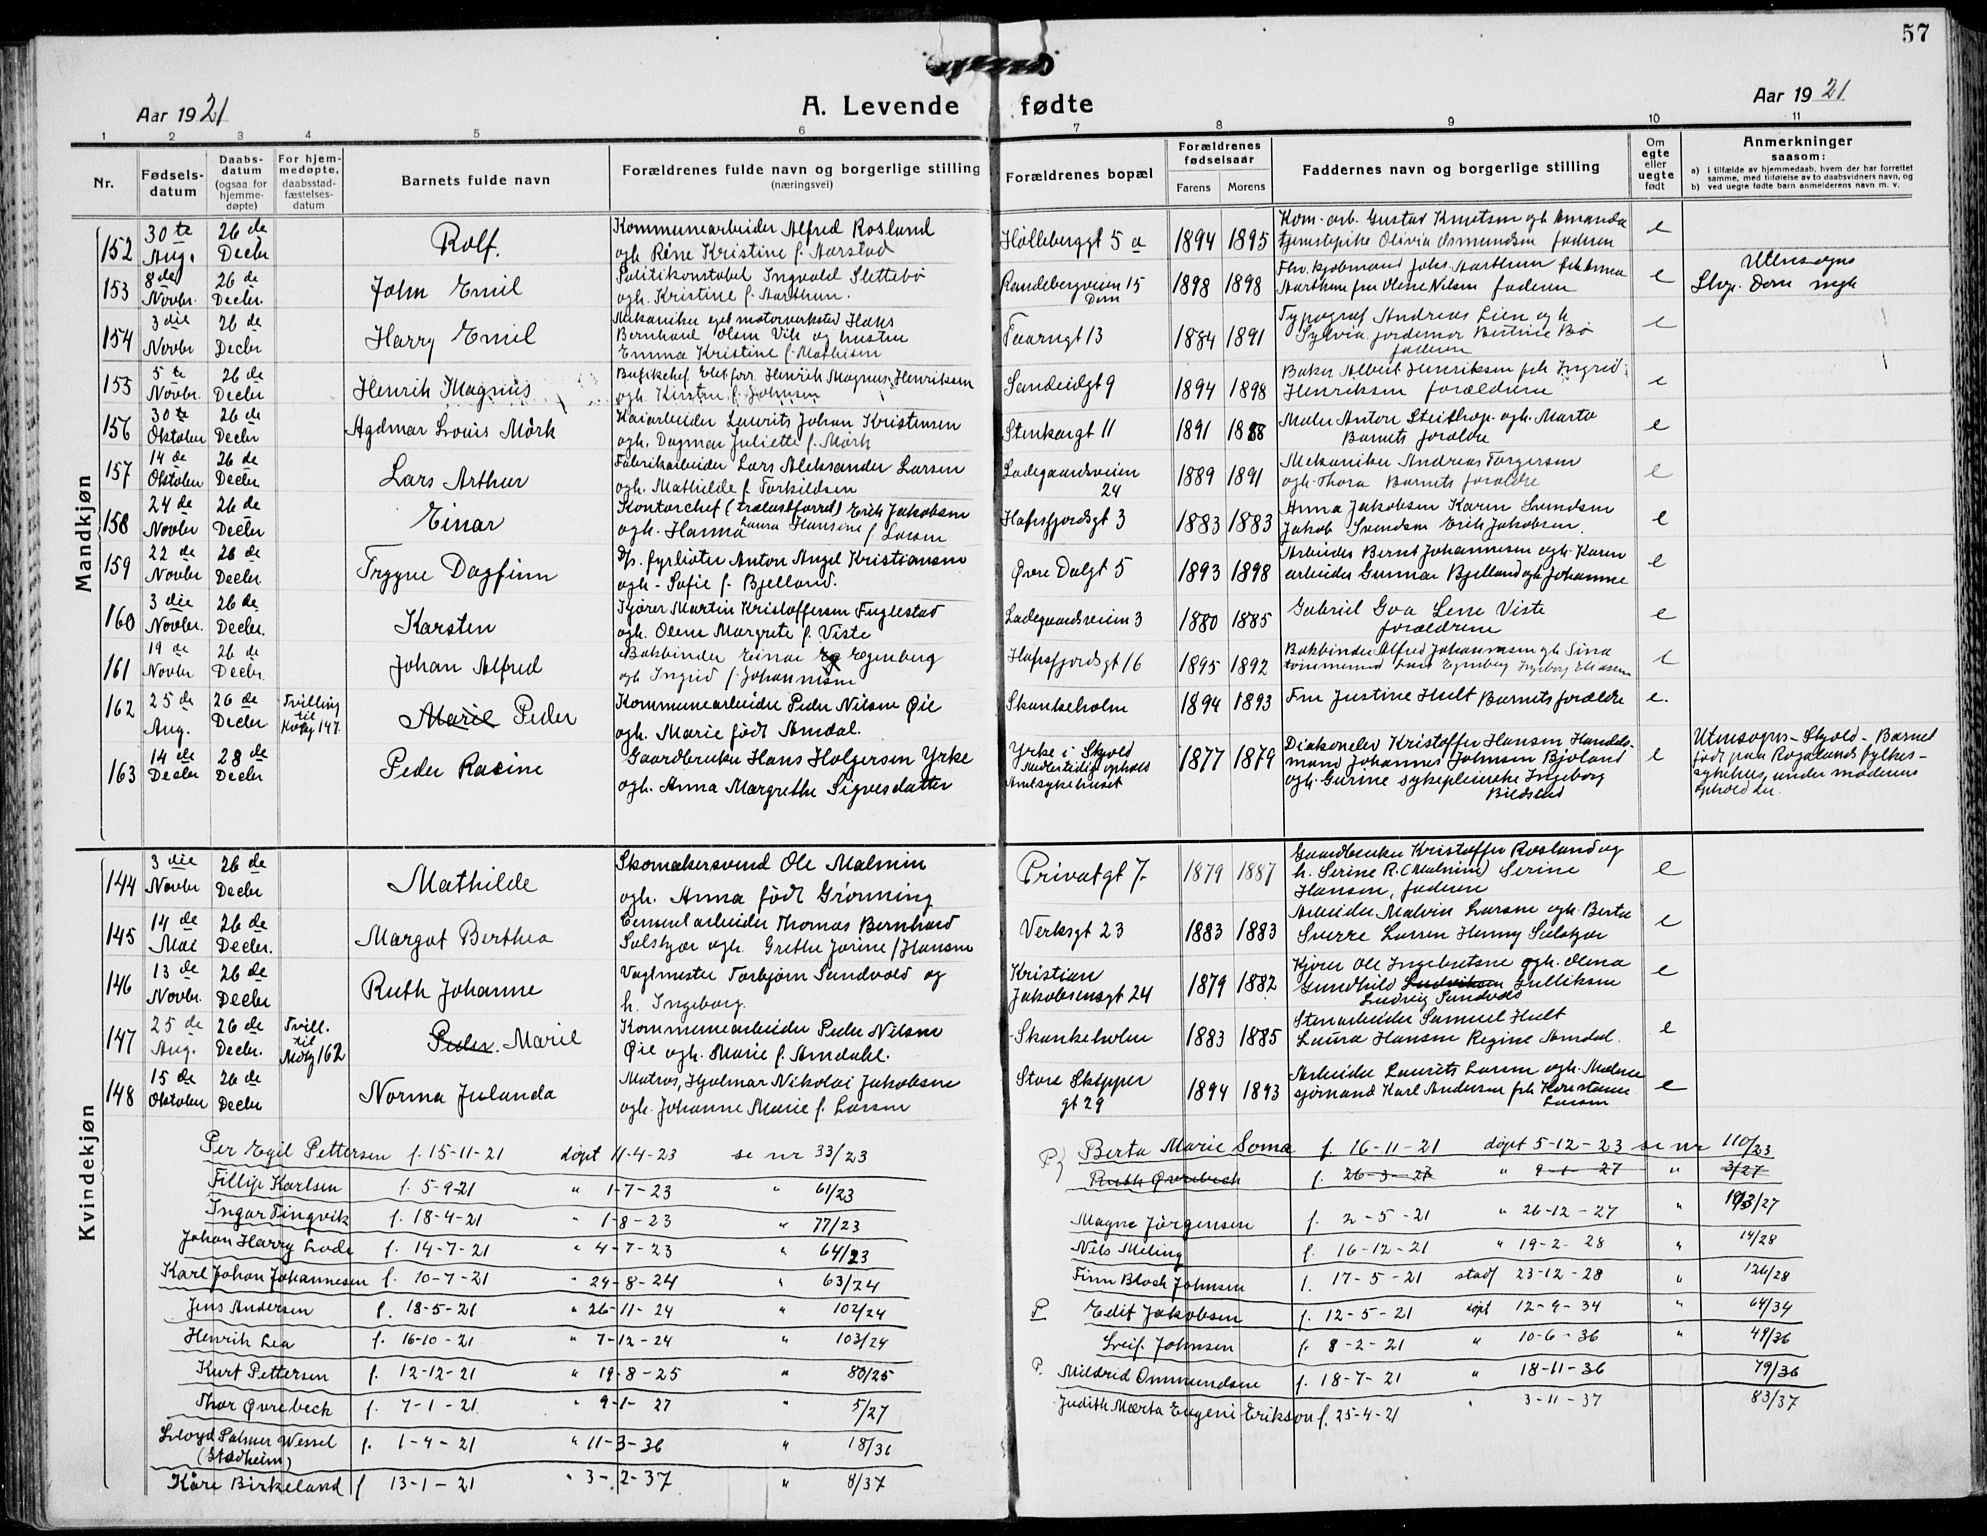 57
Aar 1921
A. Levende fødte
Aar 1921
1 2 3 4 5 6 7 8 9 10 11
Nr.
Fødsels-
datum
Daabs-
datum
(ogsaa for
hjemme-
døpte)
For hjem-
medøpte,
daabsstad-
fæstelses-
datum
Barnets fulde navn
Forældrenes fulde navn og borgerlige stilling
(næringsvei)
Forældrenes bopæl
Forældrenes
fødselsaar
Farens Morens
Faddernes navn og borgerlige stilling
Om
egte
eller
uegte
født
Anmerkninger
saasom:
a) i tilfælde av hjemmedaab, hvem der har forrettet
samme, med tilføielse av to daabsvidners navn, og
b) ved uegte fødte barn anmelderens navn m. v.
Mandkjøn
152 30te Aug. 26de Decbr Rolf.
Kommunearbeider Alfred Rosland
ogh. Kristine f. Aarstad
Hølleberggt 5 a 1894 1895
Kom. arb. Gustav Knutsen ogh Amanda
tjenestepike Olivia Osmundsen faderen
e
153 8de Novbr. 26de Decbr. John Emil
Politikonstabel Ingvald Slettebø
ogh. Kristine f. Aarthun.
Randebergveien 15
Dom
1898 1898
Aarthun fru Olene Nilsen faderen
e
Utensogns
154 3die Novbr 26de Decbr Harry Emil
Mekaniker eget motorverksted Hans
Bernhard Olsen Vik og hustru
Emma Kristine f. Mathisen
1884 1891
Typograf Andreas Lien og h
Sylvia jordemor Bertine Bø
faderen
e
155 5te Novbr. 26de Decbr Henrik Magnus
Henrik Magnus Henriksen
ogh. Kirsten f. Johnsen
Sandeidgt 9 1894 1898
Baker Albert Henriksen frk Ingrid
Henriksen forældrene
e
156 30te Oktober 26de Decbr Agdmar Louis Mørk
Kaiarbeider Laurits Johan Kristensen
ogh. Dagmar Juliette f. Mørk
Stenkargt 11 1891 1888
ogh. Marta
Barnets forældre
e
157 14de Oktober 26de Decbr Lars Arthur
Fabrikarbeider Lars Aleksander Larsen
ogh. Mathilde f. Torkildsen
Ladegaardsveien
24
1889 1891
Mekaniker Andreas Torgersen
ogh. Thora Barnets forældre
e
158 24de Novbr 26de Decbr. Einar
Kontorchef (trælastforret) Erik Jakobsen
ogh. Hanna Laura Hansine f Larsen
Hafrsfjordsgt 3 1883 1883
Anna Jakobsen Karen Svendsen
Jakob Svendsen Erik Jakobsen.
e
159 22de Novbr 26de Decbr. Trygve Dagfinn
D/s. fyrbøter Anton Angel Kristiansen
ogh. Sofie f. Bjelland.
Øvre Dalgt 5 1893 1898
Arbeider Bernt Johannesen ogh. Karen
arbeider Gunnar Bjelland ogh Johanne
e
160 3die Novbr. 26de Decbr. Karsten
Kjører Martin Kristoffersen Fuglestad
ogh. Olene Margrete f. Viste
Ladegaardsveien 3 1880 1885
Gabriel Goa Lene Viste
forældrene
e
161 19de Novbr 26de Decbr. Johan Alfred
Bokbinder Einar Egenberg
ogh Ingrid f. Johannesen
Hafrsfjordsgt 16 1895 1892
Bokbinder Alfred Johannesen ogh Sina
Egenberg Ingeborg Eliassen
e
162 25de Aug. 26de Decbr
Tvilling
til
Kvkj 147.
Marie Peder
Kommunearbeider Peder Nilsen Øie
ogh. Marie født Amdal.
Skankeholm 1894 1893
Fru Justine Hult Barnets forældre
e.
163 14de Decbr 28de Decbr Peder Rasine
Gaardbruker Hans Holgersen Yrke
ogh. Anna Margrethe Sigvesdatter
Yrke i Skjold
Midlertidig ophold
Amtsykehuset
1877 1879
Diakonelev Kristoffer Hansen, Handels-
mand Johannes Johnsen Bjoland
ogh. Gurine sykepleierske Ingeborg
Bildstad
e
Utensogns – Skjold – Barnet
født paa Rogalands fylkes-
sykehus under moderens
ophold der.
Kvindekjøn
144 3die Novbr 26de Decbr Mathilde
Skomakersvend Ole Malmin
ogh. Anna født Grønning
Privatgt 7. 1879 1887
Gaardbruker Kristoffer Rosland og
h. Serine R. (Malmin) Serine
Hansen, faderen
e
145 14de Mai 26de Decbr. Margot Berthea
Cementarbeider Thomas Bernhard
Selskjær ogh. Grethe Jorine f Hansen
Verksgt 23 1883 1883
Arbeider Malvin Larsen ogh. Berta
Sverre Larsen Henny Selskjær
e
146 13de Novbr. 26de Decbr Ruth Johanne
Vagtmester Torbjørn Sandvold og
h. Ingeborg.
Kristian
Jakobsensgt 24
1879 1882
Kjører Ole Ingebretsen ogh. Olena
Gundhild Ludviksen Gulliksen
Ludvig Sandvold
e
147 25de Aug. 26de Decbr.
Tvill.
til
Mkj 162
Peder. Marie
Kommunearbeider Peder Nilsen
Øie ogh. Marie f. Amdahl.
Skankeholm 1883 1885
Stenarbeider Samuel Hult
Laura Hansen Regine Amdal.
e
148 15de Oktober 26de Decbr Norma Julanda
Matros, Hjalmar Nikolai Jakobsen
ogh. Johanne Marie f. Larsen
Store Skipper
gt 29
1894 1893
Arbeider Laurits Larsen ogh. Malene
sjømand Karl Andersen frk Konstanse
Larsen
e
Per Egil Pettersen f. 15-11-21 døpt 11-4-23 se nr 33/23
Fillip Karlsen f. 5-9-21 " 1-7-23 " 61/23
Ingar Tingvik f. 18-4-21 " 1-8-23 " 77/23
Johan Harry Lode f. 14-7-21 " 4-7-23 " 64/23
Karl Johan Johannesen f. 10-7-21 " 24-8-24 " 63/24
Jens Andersen f. 18-5-21 " 26-11-24 " 102/24
Henrik Lea f. 16-10-21 " 7-12-24 " 103/24
Kurt Pettersen f. 12-12-21 " 19-8-25 " 80/25
Thor Øvrebech f. 7-1-21 " 9-1-27 " 5/27
Lloyd Palmer Wessel f. 1-4-21 " 11-3-36 " 18/36
(Stadheim)
Kåre Birkeland f 13-1-21 " 3-2-37 " 8/37
P) Berta Marie Soma f. 16-11-21 døpt 5-12-23 se nr 110/23
Ruth Øvrebech f. 26-3-27 " 9-1-27 " 3/27
Magne Jørgensen f. 2-5-21 " 26-12-27 " 193/27
Nils Meling f. 16-12-21 " 19-2-28 " 14/28
Finn Bloch Johnsen f. 17-5-21 stadf 23-12-28 " 126/28
P Edit Jakobsen f. 12-5-21 døpt 12-9-34 " 64/34
Leif Johnsen f. 8-2-21 " 10-6-36 " 49/36
P. Mildrid Ommundsen f. 18-7-21 " 18-11-36 79/36
Judith Mærta Eugeni Erikson f. 25-4-21 " 3-11-37 83/37